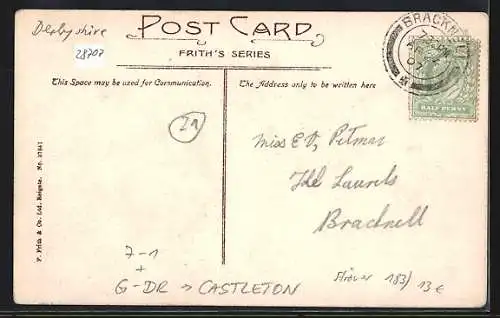 Derbyshire
28707
POST CARD
FRITH'S SERIES
This Space may be used for Communication.
The Address only to be written here
BRACKN
HALF PENNY
21
Miss E V, Pitman
The Laurels
Bracknell
F. Frith & Co. Ltd. Reigate. No.
7-1
+
G-DR → CASTLETON
183/ 13 €